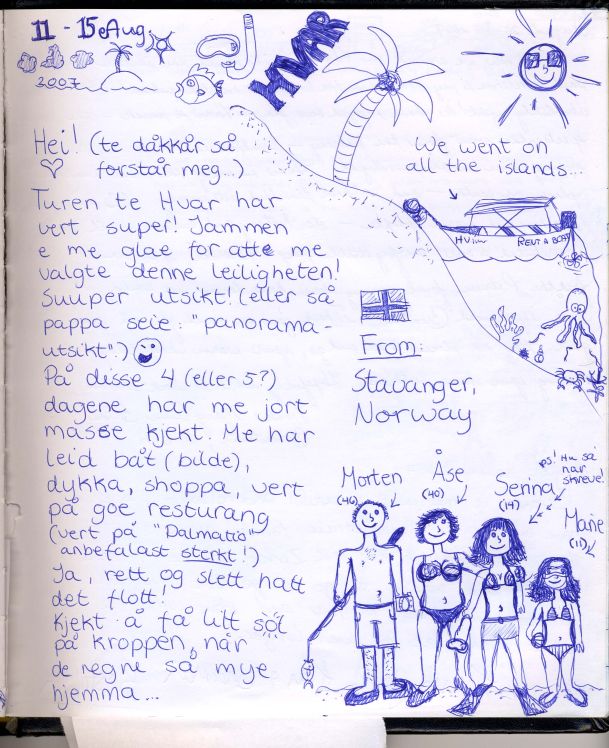 11 - 15 e Aug.
2007
HVAR
Hei! (te dåkkår så
forstår meg...)
Turen te Hvar har
vert super! Jammen
e me glae for atte me
valgte denne leiligheten!
Suuper utsikt! (eller så
pappa seie: "panorama-
utsikt".)
På disse 4 (eller 5?)
dagene har me jort
masse kjekt. Me har
leid båt (bilde),
dykka, shoppa, vert
på goe resturang
(vert på "Dalmatio"
anbefalast sterkt!)
Ja, rett og slett hatt
det flott!
Kjekt å få litt sol
på kroppen, når
de regne så mye
hjemma...
We went on
all the islands...
RENT A BOAT
From:
Stavanger,
Norway
Morten
(46)
Åse
(40)
Serina
(14)
ps! Hu så
har
skreve!
Marie
(11)